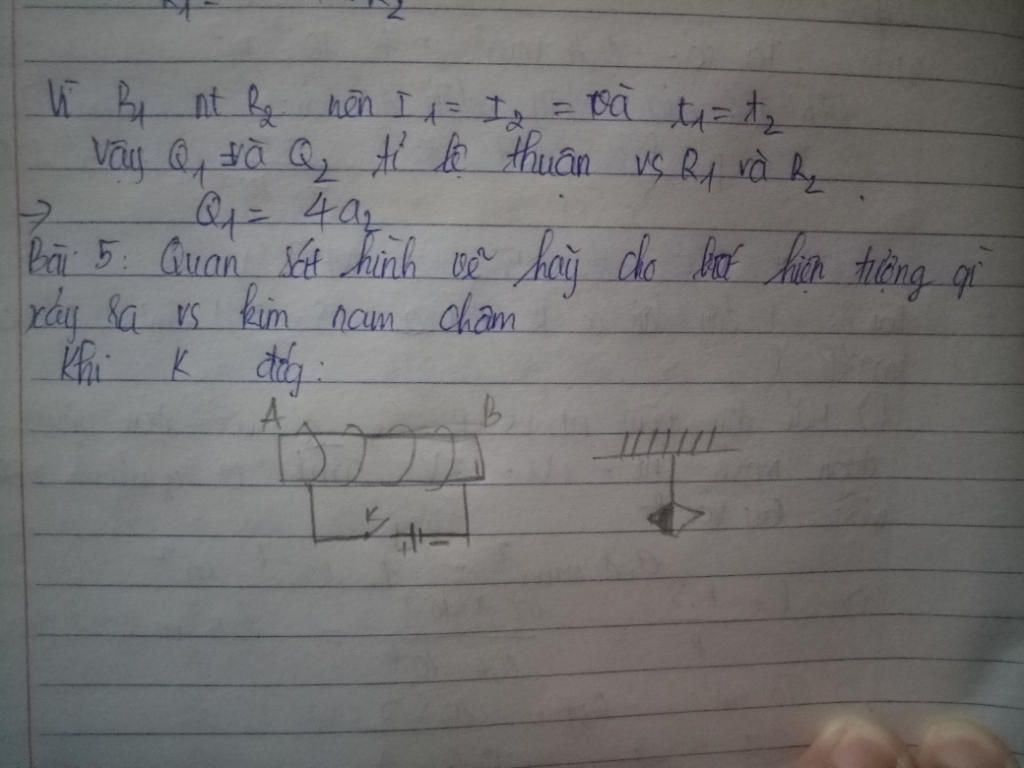 Vì R₁ nt R₂ nên I₁ = I₂ = và t₁ = t₂
Vậy Q₁ và Q₂ tỉ lệ thuận vs R₁ và R₂.
→ Q₁ = 4Q₂
Bài 5: Quan sát hình vẽ hãy cho biết hiện tượng gì
xảy ra vs kim nam châm
Khi K đóng:
A B
K
+ -